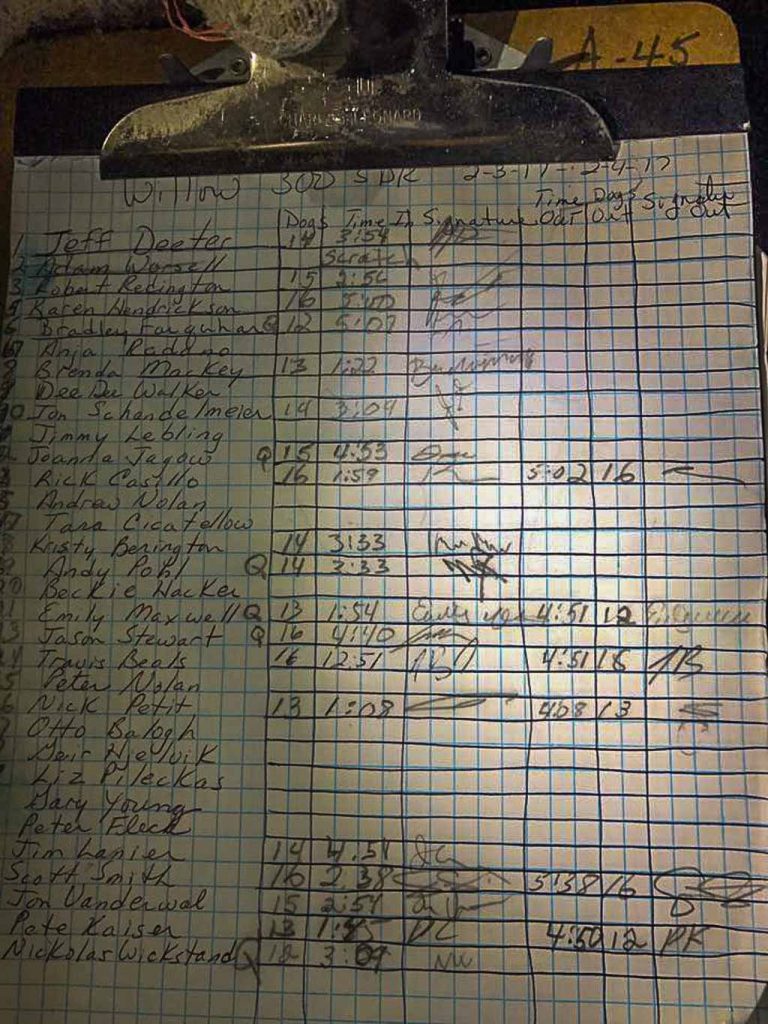 A-45
Willow 300 2-3-17 - 2-4-17
Dogs Time In Signature Time Out Dogs Out Signature Out
1 Jeff Deeter 14 3:54
2 Adam Worsell Scratch
3 Robert Redington 15
4 Karen Hendrickson 16 5:00
Bradley Farquhar Q 12 5:07
Anja Radano
Brenda Mackey 13 1:22
Dee Dee Walker
10 Jon Schandelmeier 14 3:09
Jimmy Lebling
Joanna Jagow Q 15 4:53
Rick Castillo 16 1:59 5:02 16
Andrew Nolan
Tara Cicatellow
Kristy Berington 14 3:33
Andy Pohl Q 14 3:33
Beckie Hacker
Emily Maxwell Q 13 1:54 4:51 12
Jason Stewart Q 16 4:40
Travis Beals 16 12:51 4:51 16 TB
Peter Nolan
Nick Petit 13 1:08 408 13
Otto Balogh
Geir Hjelvik
Liz Pileckas
Gary Young
Peter Fleck
Jim Lanier 14 4:51
Scott Smith 16 2:38 5:38 16
Jon Vanderwal 15 2:57
Pete Kaiser 13 4:50 12 PK
Nickolas Wickstand Q 12 3:09 NW